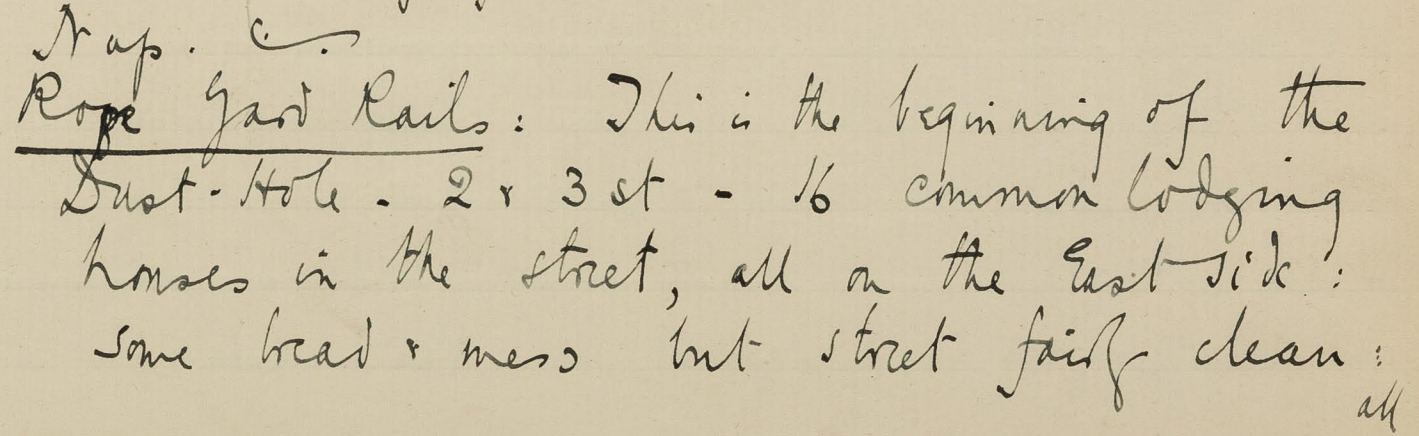 Map. C.
Rope Yard Rails: This is the beginning of the
Dust-Hole - 2 & 3 st - 16 common lodging
houses in the street, all on the East side:
some bread & mess but street fairly clean:
all